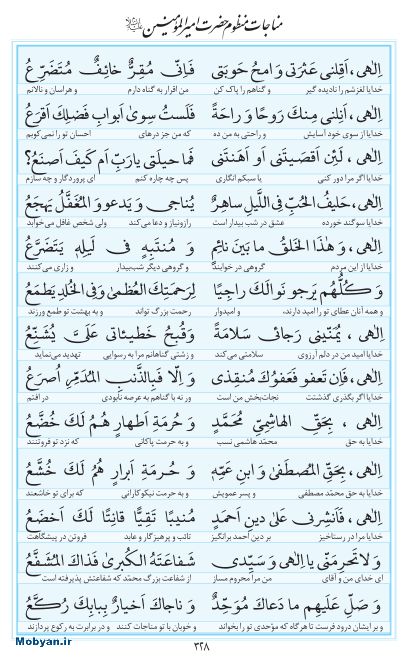 مناجات منظوم حضرت امیرالمؤمنین
اِلٰهی، اَقِلنی عَثرَتی وَ امحُ حَوبَتی فَاِنّی مُقِرٌّ خائِفٌ مُتَضَرِّعُ
خدایا لغزشم را نادیده گیر و گناهم را پاک کن من اقرار به گناه دارم و هراسان و نالانم
اِلٰهی، اَنِلنی مِنكَ رَوحًا وَ راحَةً فَلَستُ سِویٰ اَبوابِ فَضلِكَ اَقرَعُ
خدایا از سوی خود آسایش و راحتی به من ده که من جز درهای احسان تو را نمی‌کوبم
اِلٰهی، لَئِن اَقصَیتَنی اَو اَهَنتَنی فَما حیلَتی یا رَبِّ اَم كَیفَ اَصنَعُ؟
خدایا اگر مرا دور کنی یا سبکم انگاری پس چه چاره کنم ای پروردگار و چه سازم
اِلٰهی، حَلیفُ الحُبِّ فِی اللَّیلِ ساهِرٌ یُناجی وَ یَدعو وَ المُغَفَّلُ یَهجَعُ
خدایا سوگند خورده عشق در شب بیدار است رازونیاز و دعا می‌کند ولی شخص غافل می‌خوابد
اِلٰهی، وَ هٰذَا الخَلقُ ما بَینَ نائِمٍ وَ مُنتَبِهٍ فی لَیلِهِ یَتَضَرَّعُ
خدایا از این مردم گروهی در خوابند و گروهی دیگر شب‌بیدار و زاری می‌کنند
وَ كُلُّهُم یَرجو نَوالَكَ راجِیًا لِرَحمَتِكَ العُظمیٰ وَ فِی الخُلدِ یَطمَعُ
و همه آنان عطای تو را امید دارند، و امیدوار رحمت بزرگ تواند و به بهشت تو طمع ورزند
اِلٰهی، یُمَنّینی رَجائی سَلامَةً وَ قُبحُ خَطیئاتی عَلَیَّ یُشَنِّعُ
خدایا امید من در دلم آرزوی سلامتی می‌کند و زشتی گناهانم مرا به رسوایی تهدید می‌نماید
اِلٰهی، فَاِن تَعفو فَعَفوُكَ مُنقِذی وَ اِلّا فَبِالذَّنبِ المُدَمِّرِ اُصرَعُ
خدایا اگر بگذری گذشتت نجات‌بخش من است ورنه با گناهم به عرصه نابودی در افتم
اِلٰهی، بِحَقِّ الهاشِمِیِّ مُحَمَّدٍ وَ حُرمَةِ اَطهارٍ هُمُ لَكَ خُضَّعُ
خدایا به حق محمّد هاشمی نسب و به حرمت پاکانی که نزد تو فروتنند
اِلٰهی، بِحَقِّ المُصطَفیٰ وَ ابنِ عَمِّهِ وَ حُرمَةِ اَبرارٍ هُمُ لَكَ خُشَّعُ
خدایا به حق محمّد مصطفی و پسر عمویش و به حرمت نیکوکارانی که برای تو خاشعند
اِلٰهی، فَاَنشِرنی عَلیٰ دینِ اَحمَدٍ مُنیبًا تَقِیًّا قانِتًا لَكَ اَخضَعُ
خدایا مرا در رستاخیز بر دین احمد برانگیز تائب و پرهیزگار و عابد فروتن در پیشگاهت
وَ لا تَحرِمَنّی یا اِلٰهی وَ سَیِّدی شَفاعَتَهُ الكُبریٰ فَذاكَ المُشَفَّعُ
ای خدای من و آقای من مرا محروم مساز از شفاعت بزرگ محمّد که شفاعتش پذیرفته است
وَ صَلِّ عَلَیهِم ما دَعاكَ مُوَحِّدٌ وَ ناجاكَ اَخیارٌ بِبابِكَ رُكَّعُ
و بر ایشان درود فرست تا هر گاه که مؤحدی تو را بخواند و خوبان با تو مناجات کنند و در برابرت به رکوع پردازند
Mobyan.ir
۳۲۸